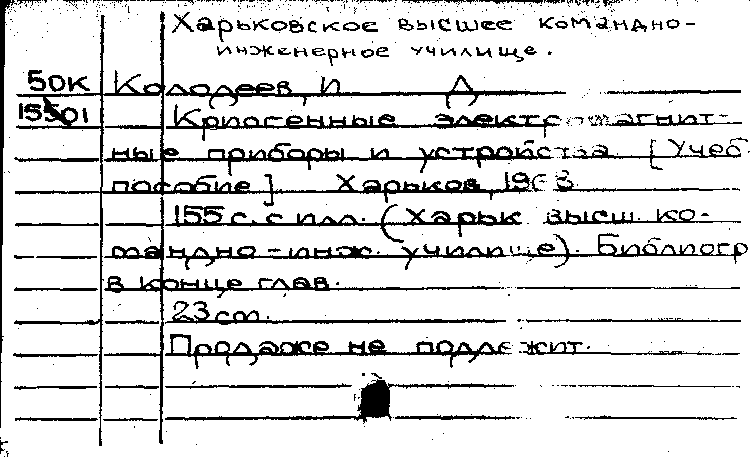 Харьковское высшее командно-
инженерное училище.
50К Колодеев, И Д
15501 Криогенные электромагнит-
ные приборы и устройства [Учеб.
пособие]. Харьков, 1963
155 с. с илл. (Харьк высш. ко-
мандно-инж. училище). Библиогр
в конце глав.
23 cm.
Продаже не подлежит.